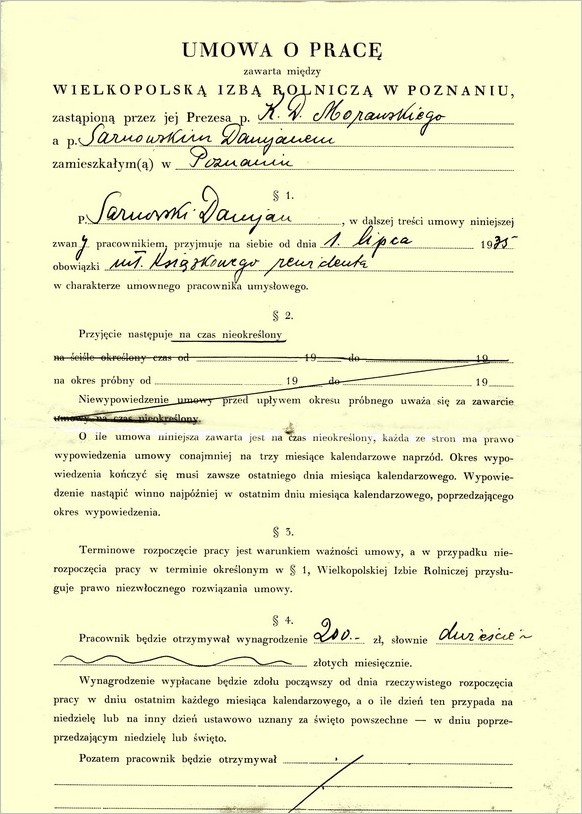 UMOWA O PRACĘ
zawarta między
WIELKOPOLSKĄ IZBĄ ROLNICZĄ W POZNANIU,
zastąpioną przez jej Prezesa p. K. D. Morawskiego
a p. Sarnowskim Damjanem
zamieszkałym(ą) w Poznaniu
§ 1.
p. Sarnowski Damjan, w dalszej treści umowy niniejszej
zwany pracownikiem, przyjmuje na siebie od dnia 1. lipca 1935
obowiązki mł. książkowego
w charakterze umownego pracownika umysłowego.
§ 2.
Przyjęcie następuje na czas nieokreślony
na ściśle określony czas od 19 do 19
na okres próbny od 19 do 19
Niewypowiedzenie umowy przed upływem okresu próbnego uważa się za zawarcie
umowy na czas nieokreślony.
O ile umowa niniejsza zawarta jest na czas nieokreślony, każda ze stron ma prawo
wypowiedzenia umowy conajmniej na trzy miesiące kalendarzowe naprzód. Okres wypo-
wiedzenia kończyć się musi zawsze ostatniego dnia miesiąca kalendarzowego. Wypowie-
dzenie nastąpić winno najpóźniej w ostatnim dniu miesiąca kalendarzowego, poprzedzającego
okres wypowiedzenia.
§ 3.
Terminowe rozpoczęcie pracy jest warunkiem ważności umowy, a w przypadku nie-
rozpoczęcia pracy w terminie określonym w § 1, Wielkopolskiej Izbie Rolniczej przysłu-
guje prawo niezwłocznego rozwiązania umowy.
§ 4.
Pracownik będzie otrzymywał wynagrodzenie 200.- zł, słownie dwieście
złotych miesięcznie.
Wynagrodzenie wypłacane będzie zdołu począwszy od dnia rzeczywistego rozpoczęcia
pracy w dniu ostatnim każdego miesiąca kalendarzowego, a o ile dzień ten przypada na
niedzielę lub na inny dzień ustawowo uznany za święto powszechne — w dniu poprze-
przedzającym niedzielę lub święto.
Pozatem pracownik będzie otrzymywał